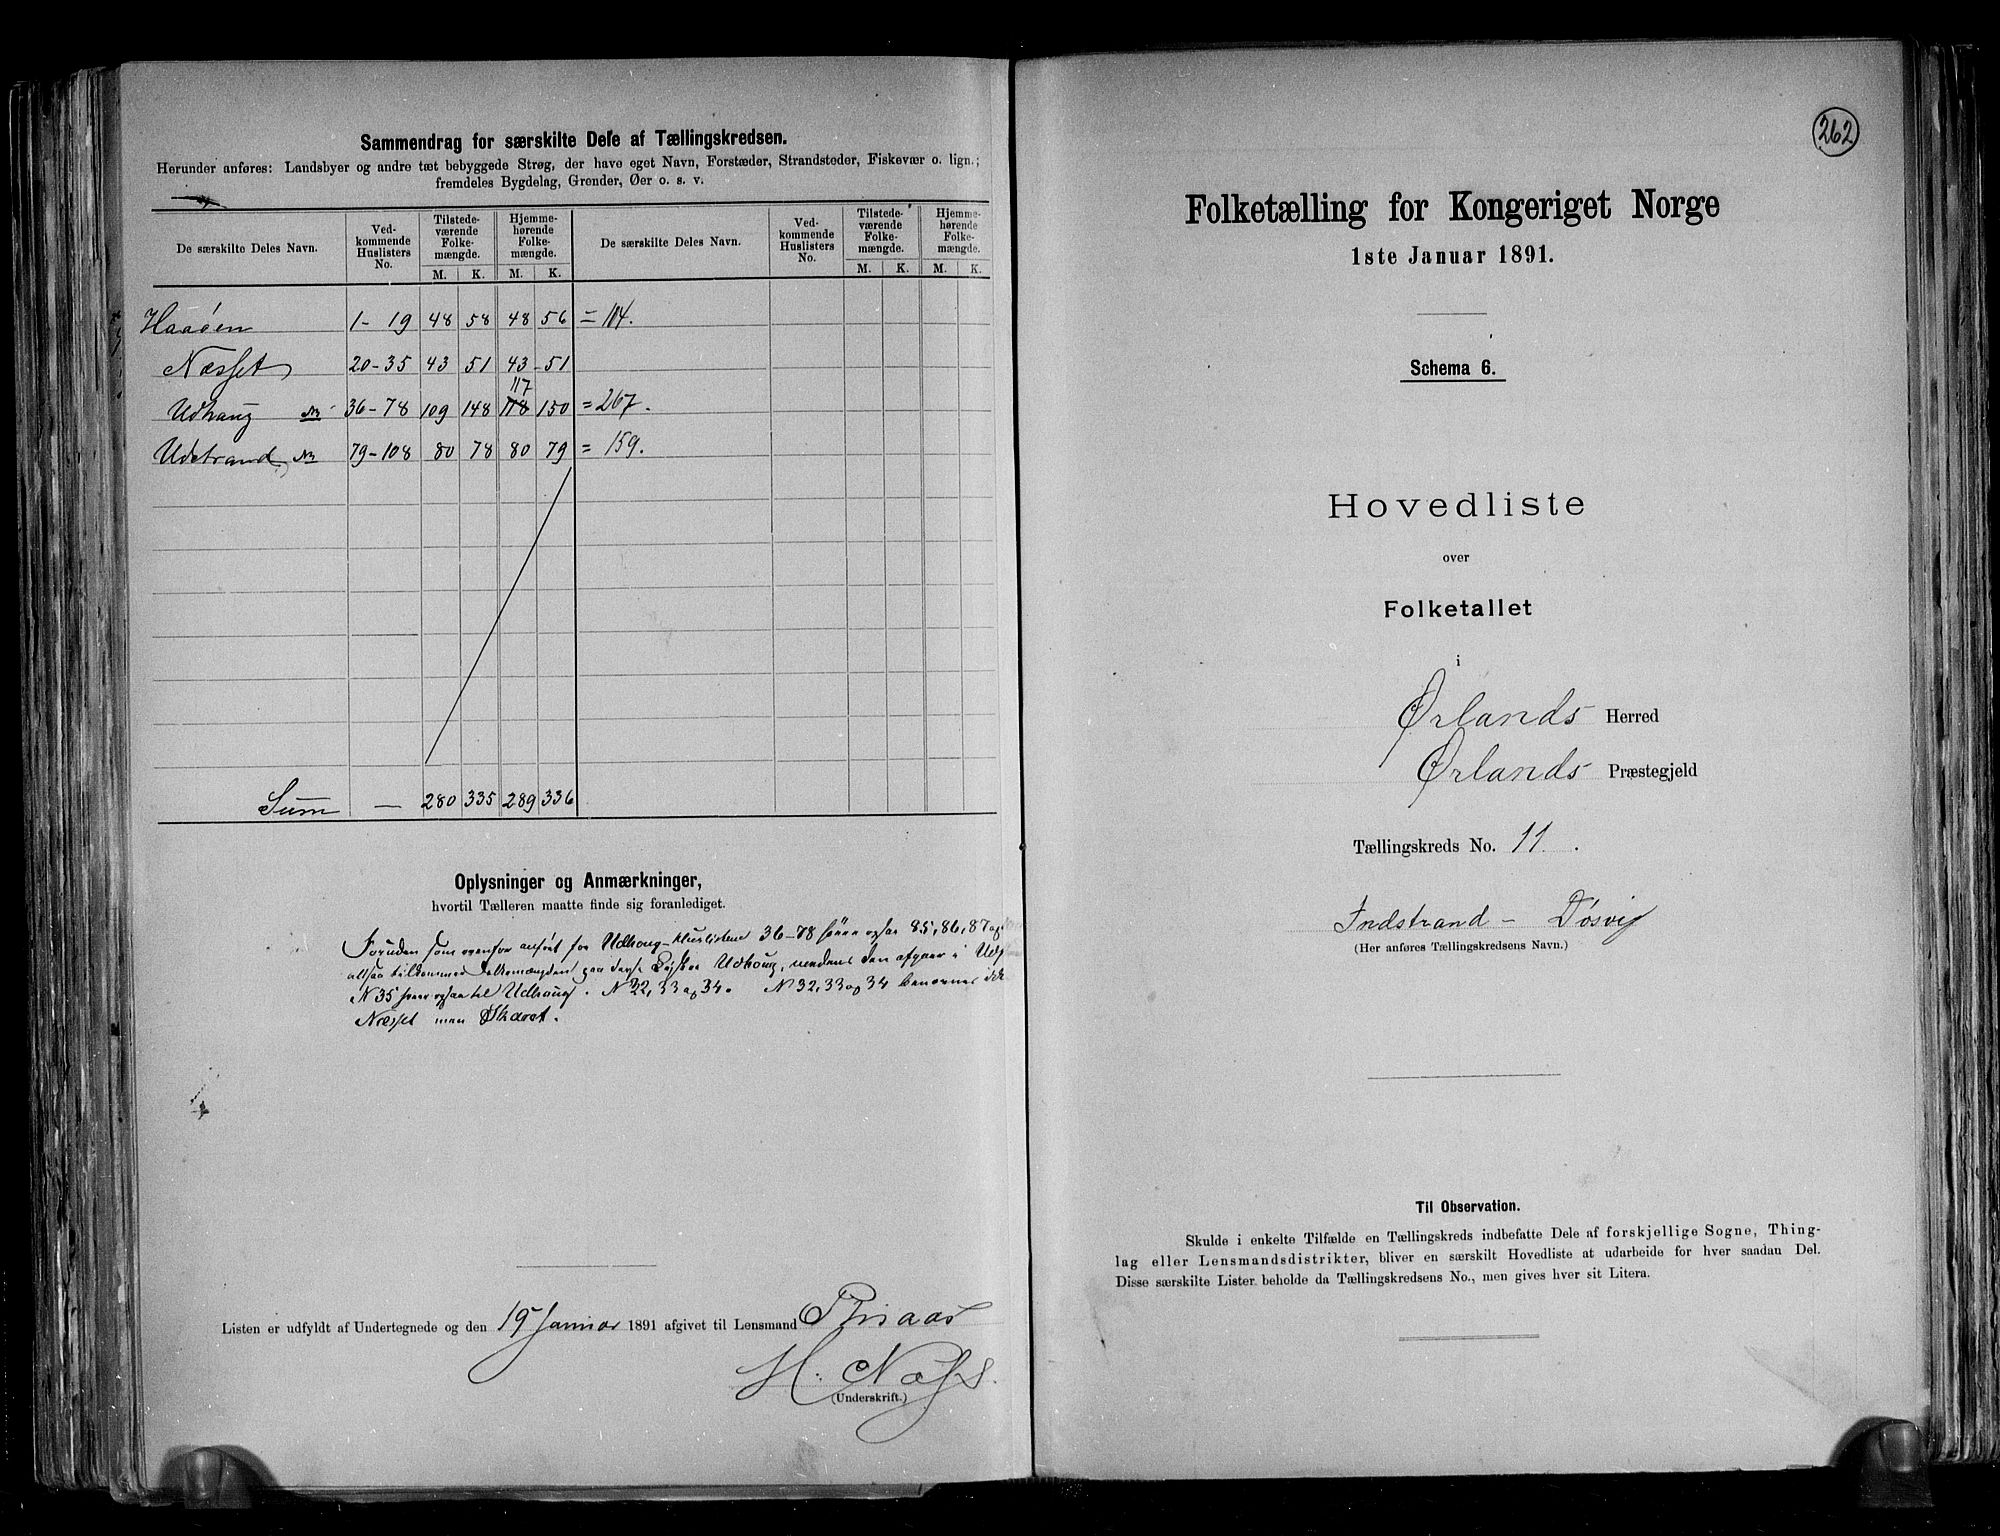 Sammendrag for særskilte Dele af Tællingskredsen.
Herunder anføres: Landsbyer og andre tæt bebyggede Strøg, der have eget Navn, Forstæder, Strandsteder, Fiskevær o. lign.;
fremdeles Bygdelag, Grender, Øer o. s. v.
De særskilte Deles Navn. Vedkommende Huslisters No. Tilstedeværende Folkemængde. M. K. Hjemmehørende Folkemængde. M. K. De særskilte Deles Navn. Vedkommende Huslisters No. Tilstedeværende Folkemængde. M. K. Hjemmehørende Folkemængde. M. K.
Haaøen 1-19 48 58 48 56 = 104.
Næsset 20-35 43 51 43 51
117
Udhaug 36-78 109 148 118 150 = 267.
Udstrand 79-108 80 78 80 79 = 159.
Sum — 280 335 289 336
Oplysninger og Anmærkninger,
hvortil Tælleren maatte finde sig foranlediget.
Foruden som ovenfor anført for Udhaug Huslisterne 36-78 hører ogsaa 85, 86, 87 og
altsaa tilkommer Folkemængden paa disse Udhaug, medens den afgaar i
N 35 hører ogsaa til Udhaug. N 32, 33 og 34. N 32, 33 og 34 benævnes ikke
Næsset men Skaret.
Listen er udfyldt af Undertegnede og den 19 Januar 1891 afgivet til Lensmand
H. Næss.
(Underskrift.)
262
Folketælling for Kongeriget Norge
1ste Januar 1891.
Schema 6.
Hovedliste
over
Folketallet
i
Ørlands Herred
Ørlands Præstegjeld
Tællingskreds No. 11.
Indstrand - Døsvig
(Her anføres Tællingskredsens Navn.)
Til Observation.
Skulde i enkelte Tilfælde en Tællingskreds indbefatte Dele af forskjellige Sogne, Thing-
lag eller Lensmandsdistrikter, bliver en særskilt Hovedliste at udarbeide for hver saadan Del.
Disse særskilte Lister beholde da Tællingskredsens No., men gives hver sit Litera.